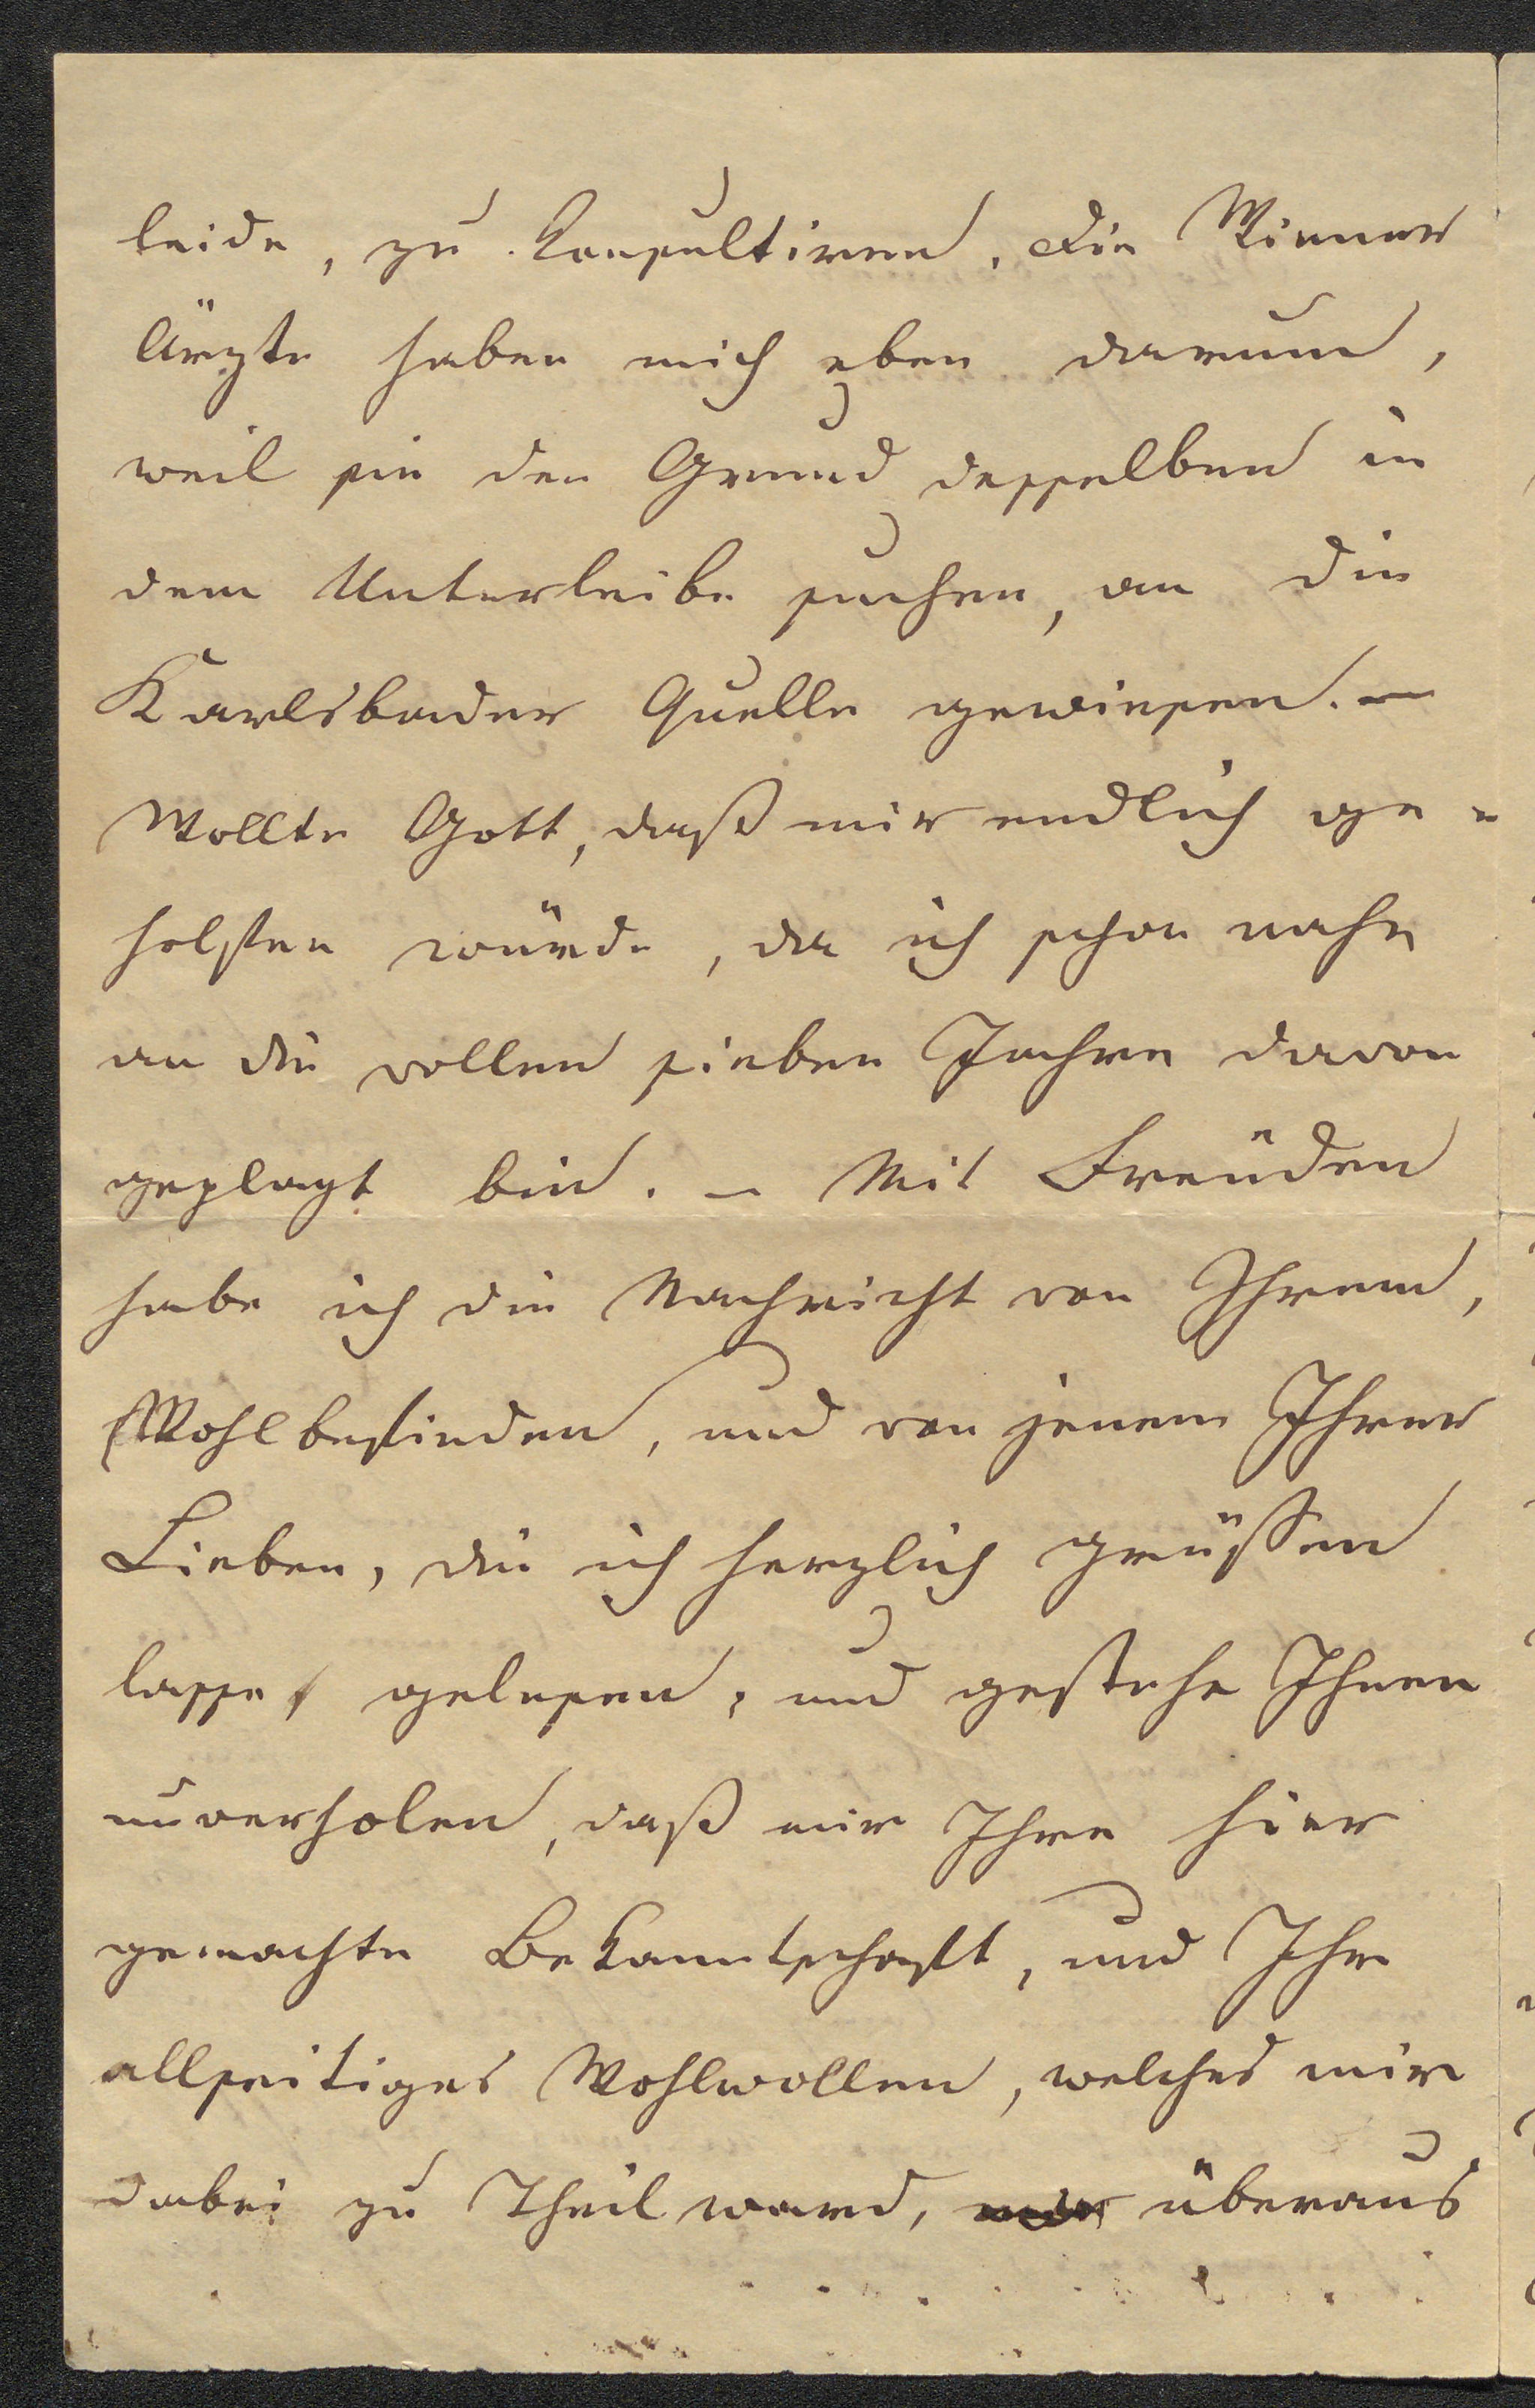 leide, zu konsultiren. Die Wiener
Ärzte haben mich eben darum,
weil sie den Grund desselben in
dem Unterleibe suchen, an die
Karlsbader Quelle gewiesen. —
Wollte Gott, daß mir endlich ge=
holfen würde, da ich schon nahe
an die vollen sieben Jahre davon
geplagt bin. — Mit Freüden
habe ich die Nachricht von Ihrem,
Wohlbefinden, und von jenem Ihrer
Lieben, die ich herzlich grüßen
lasse, gelesen, und gestehe Ihnen
unverholen, daß mir Ihre hier
gemachte Bekanntschaft, und Ihr
allseitiges Wohlwollen, welches mir
dabei zu Theil ward, überaus